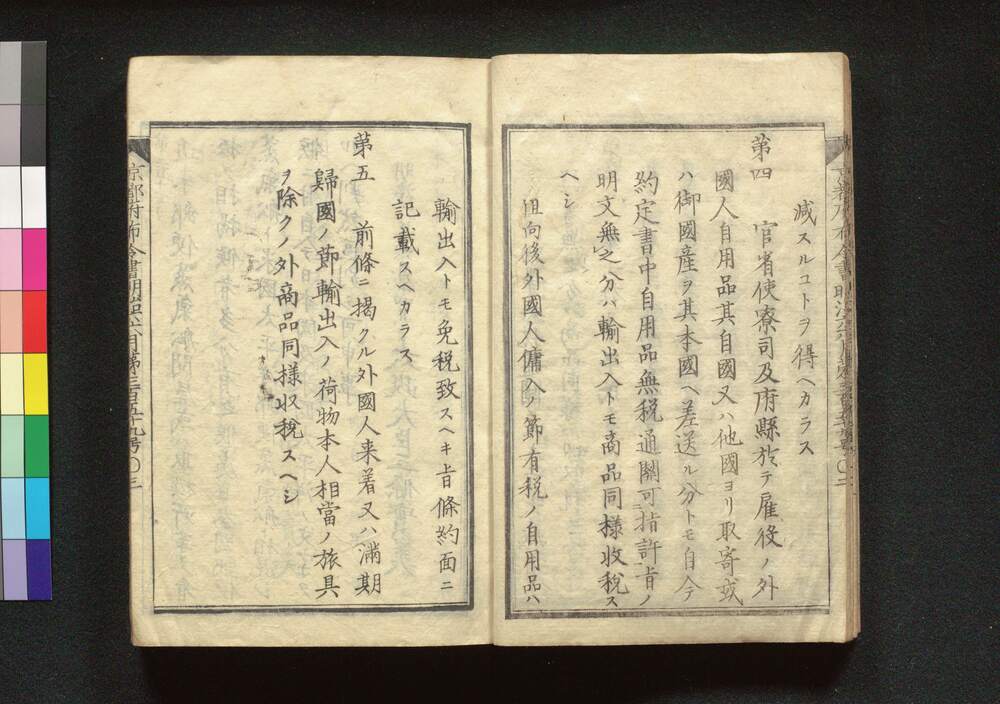 減スルコトヲ得ヘカラス
第四　官省使寮司及府縣於テ雇役ノ外
國人自用品其自國又ハ他國ヨリ取寄或
ハ御國産ヲ其本國ヘ差送ル分トモ自今
約定書中自用品無税通關可指許旨ノ
明文無之分ハ輸出入トモ商品同様收税ス
ヘシ
但向後外國人傭入ノ節有税ノ自用品ハ
輸出入トモ免税致スヘキ旨條約面ニ
記載スヘカラス
第五　前條ニ揭クル外國人来着又ハ満期
歸國ノ節輸出入ノ荷物本人相當ノ旅具
ヲ除クノ外商品同様收税スヘシ
京都府布令書明治六年六月第三百五十九号〇三